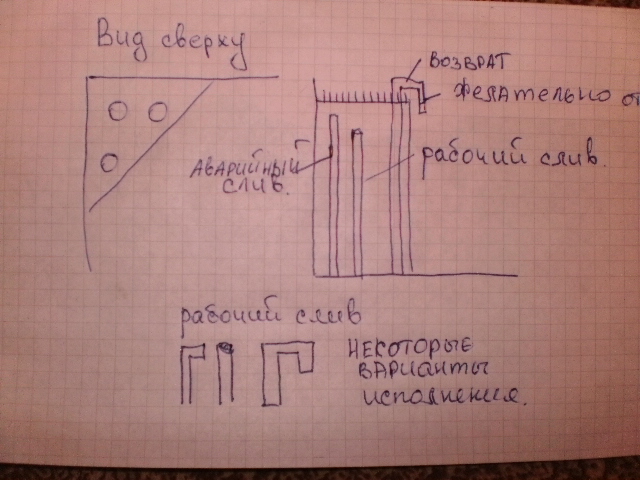 Вид сверху
ВОЗВРАТ
ЖЕЛАТЕЛЬНО ОТ
АВАРИЙНЫЙ
СЛИВ.
рабочий слив.
рабочий слив
НЕКОТОРЫЕ
ВАРИАНТЫ
исполнения.